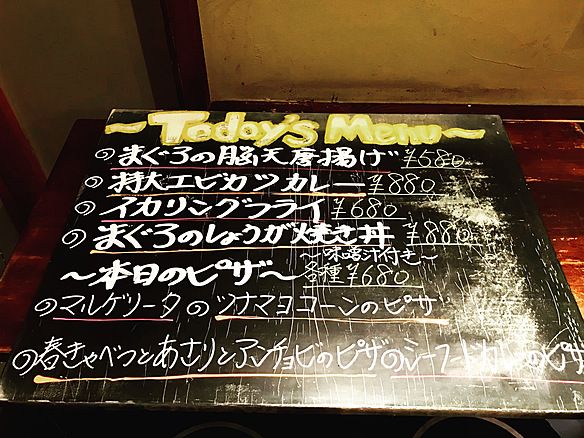 ~Today's Menu~
まぐろの脳天唐揚げ ¥580
特大エビカツカレー ¥880
イカリングフライ ¥680
まぐろのしょうが焼き丼 ¥880
~味噌汁付き~
~本日のピザ~ 各種¥680
マルゲリータ ツナマヨコーンのピザ
春きゃべつとあさりとアンチョビのピザ シーフードカレーのピザ